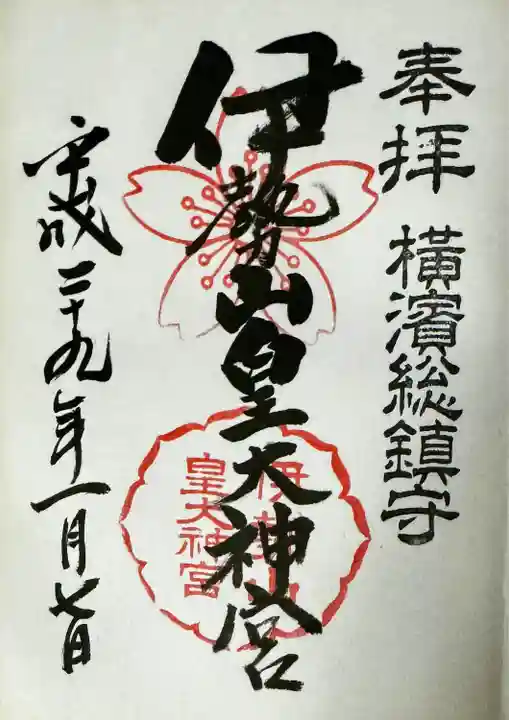 奉拝 横濱総鎮守
伊勢山皇大神宮
伊勢山
皇大神宮
平成二十九年一月七日